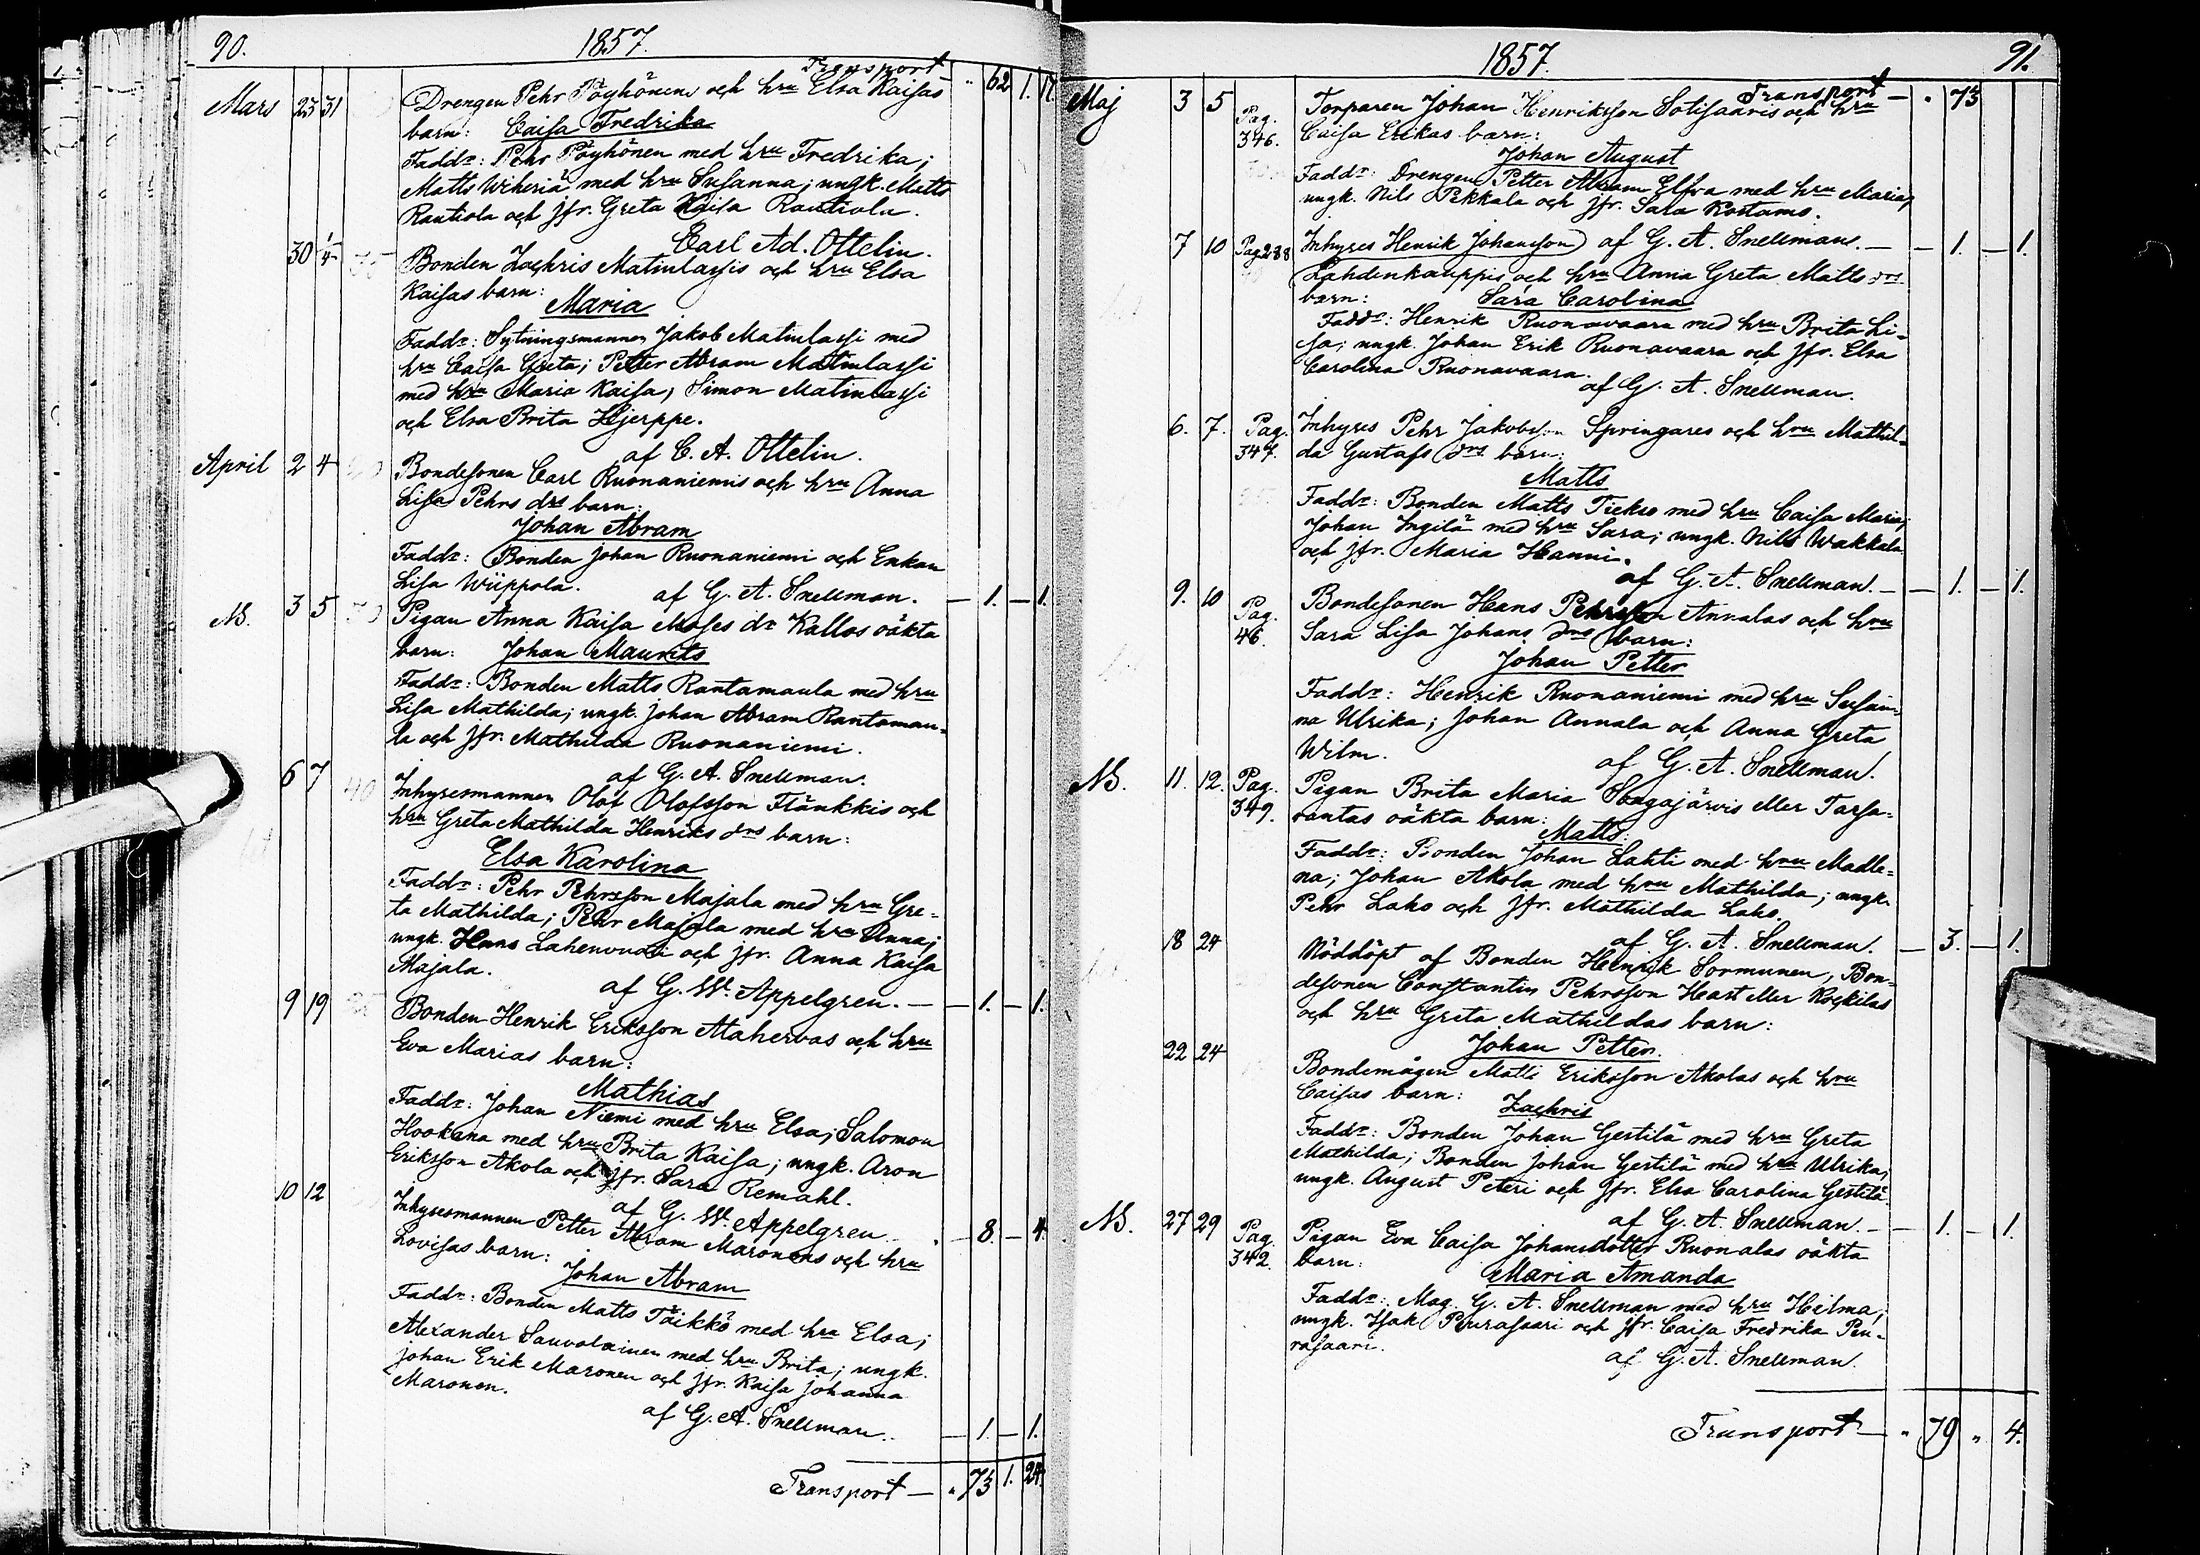 90.
1857.
Transport — " 62 1. 17.
Mars 23 31 Drengen Pehr Pöyhönens och hru Elsa Kaisas
barn: Caisa Fredrika
Faddr: Pehr Pöyhönen med hru Fredrika;
Matts Wiheriä med hru Susanna; ungk. Matts
Rautiola och jfr. Greta Kaisa Rautiola.
Carl Ad. Ottelin.
30 1/4 Bonden Zachris Matinlassis och hru Elsa
Kaisas barn:
Maria
Faddr: Sytningsmannen Jakob Matinlassi med
hru Caisa Greta; Petter Abram Matinlassi
med hru Maria Kaisa; Simon Matinlassi
och Elsa Brita Hjerppe.
af C. A. Ottelin.
April 2 4 Bondesonen Carl Ruonaniemis och hru Anna
Lisa Pehrs drs barn:
Johan Abram
Faddr: Bonden Johan Ruonaniemi och Enkan
Lisa Wiippola.
af G. A. Snellman. — 1. — 1.
NB. 3 5 Pigan Anna Kaisa Moses dr Kallos oäkta
barn: Johan Maurits
Faddr: Bonden Matts Rantamaula med hru
Lisa Mathilda; ungk. Johan Abram Rantamau-
la och jfr. Mathilda Ruonaniemi.
af G. A. Snellman.
6 7 40 Inhysesmannen Olof Olofsson Flänkkis och
hru Greta Mathilda Henriks drs barn:
Elsa Karolina
Faddr: Pehr Pehrsson Majala med hru Gre-
ta Mathilda; Pehr Majala med hru Anna;
ungk. Hans Lahenvuoti och jfr. Anna Kaisa
Majala.
af G. W. Appelgren. — 1. — 1.
9 19 Bonden Henrik Eriksson Atahervas och hru
Eva Marias barn:
Mathias
Faddr: Johan Niemi med hru Elsa; Salomon
Hookana med hru Brita Kaisa; ungk. Aron
Eriksson Akola och jfr. Sara Remahl.
af G. W. Appelgren — 8. — 4.
10 12 Inhysesmannen Petter Abram Maronens och hru
Lovisas barn:
Johan Abram
Faddr: Bonden Matts Täikkö med hru Elsa;
Alexander Sauvolainen med hru Brita; ungk.
Johan Erik Maronen och jfr. Kaisa Johanna
Maronen.
af G. A. Snellman. — 1. — 1.
Transport — " 73 1. 24.
1857.
91.
Transport — " 73
Maj 3 5 Pag. 346. Torparen Johan Henriksson Sotisaaris och hru
Caisa Erikas barn:
Johan August
Faddr: Drengen Petter Abram Elfva med hru Maria;
ungk. Nils Pekkala och jfr. Sara Kostamo.
af G. A. Snellman. — 1. — 1.
7 10 Pag 288 Inhyses Henrik Johansson
Lahdenkauppis och hru Anna Greta Matts drs
barn: Sara Carolina
Faddr: Henrik Ruonavaara med hru Brita Li-
sa; ungk. Johan Erik Ruonavaara och jfr. Elsa
Carolina Ruonavaara.
af G. A. Snellman.
6. 7. Pag. 347. Inhyses Pehr Jakobsson Springares och hru Mathil-
da Gustafs drs barn:
Matts
Faddr: Bonden Matts Tiekso med hru Caisa Maria;
Johan Ingilä med hru Sara; ungk. Nils Wakkala
och jfr. Maria Hanni.
af G. A. Snellman. — 1. — 1.
9. 10 Pag. 46. Bondesonen Hans Pehrsson Annalas och hru
Sara Lisa Johans drs barn:
Johan Petter
Faddr: Henrik Ruonaniemi med hru Susan-
na Ulrika; Johan Annala och Anna Greta
Wilm.
af G. A. Snellman.
NB. 11. 12. Pag. 349. Pigan Brita Maria Songajärvis eller Tarsa-
rantas oäkta barn:
Matts.
Faddr: Bonden Johan Lahti med hru Madle-
na; Johan Akola med hru Mathilda; ungk.
Pehr Lako och jfr. Mathilda Lako.
af G. A. Snellman. — 3. — 1.
18 24 Nöddöpt af Bonden Henrik Sormunen, Bon-
desonen Constantin Pehrsson Hast eller Kockilas
och hru Greta Mathildas barn:
Johan Petter.
22 24 Bondemågen Matti Eriksson Akolas och hru
Caisas barn:
Zachris
Faddr: Bonden Johan Gestilä med hru Greta
Mathilda; Bonden Johan Gestilä med hru Ulrika;
ungk. August Peteri och jfr. Elsa Carolina Gestilä
af G. A. Snellman. — 1. — 1.
NB. 27 29 Pag. 342. Pigan Eva Caisa Johansdotter Ruonalas oäkta
barn:
Maria Amanda
Faddr: Mag. G. A. Snellman med hru Hilma;
ungk. Isak Peurasaari och jfr. Caisa Fredrika Peu-
rasaari.
af G. A. Snellman.
Transport — " 79 " 4.